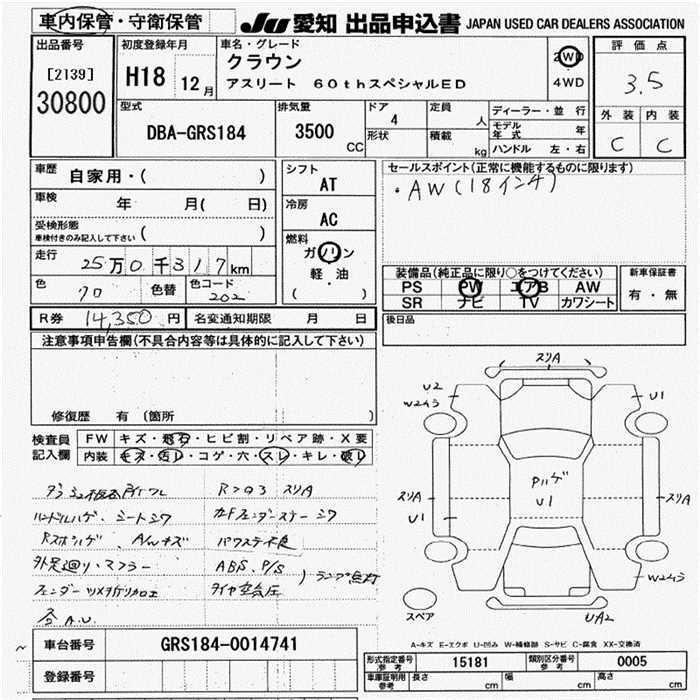 車内保管・守衛保管
JU 愛知 出品申込書 JAPAN USED CAR DEALERS ASSOCIATION
出品番号
[2139]
30800
初度登録年月
H18 12月
車名・グレード
クラウン
アスリート 60thスペシャルED
2WD
4WD
評価点
3.5
外装 内装
C C
型式
DBA-GRS184
排気量
3500 CC
ドア
4
形状
定員
人
積載
kg
ディーラー・並行
モデル年式 年
ハンドル 左・右
車歴
自家用・( )
車検 年 月( 日)
受検形態
車検付きのみ記入して下さい ( )
走行 25万0千317km
色 クロ 色替 色コード 202
シフト
AT
冷房
AC
燃料
ガソリン
軽・油
( )
セールスポイント(正常に機能するものに限ります)
・AW(18インチ)
装備品(純正品に限り○をつけてください)
PS PW エアB AW
SR ナビ TV カワシート
新車保証書
有・無
R券 14,350円 名変通知期限 月 日
後日品
注意事項申告欄(不具合内容等は具体的に記入して下さい)
修復歴 有(箇所 )
検査員記入欄
FW キズ・飛石・ヒビ割・リペア跡・X要
内装 キズ・汚レ・コゲ・穴・スレ・キレ・破レ
ハンドルハゲ、シートシワ
外足廻り・マフラー
ABS、P/S
タイヤ空気圧
ランプ点灯
スリA
U2
W2キラ
U1
スリA
U1
Pハゲ
U1
スリA
W2キラ
UA2
スペア
A-キズ E-エクボ U-凹み W-補修跡 S-サビ C-腐食 XX-交換済
車台番号 GRS184-0014741
登録番号
形式指定番号 参考 15181 類別区分番号 参考 0005
車庫証明用 参考 長さ cm 幅 cm 高さ cm